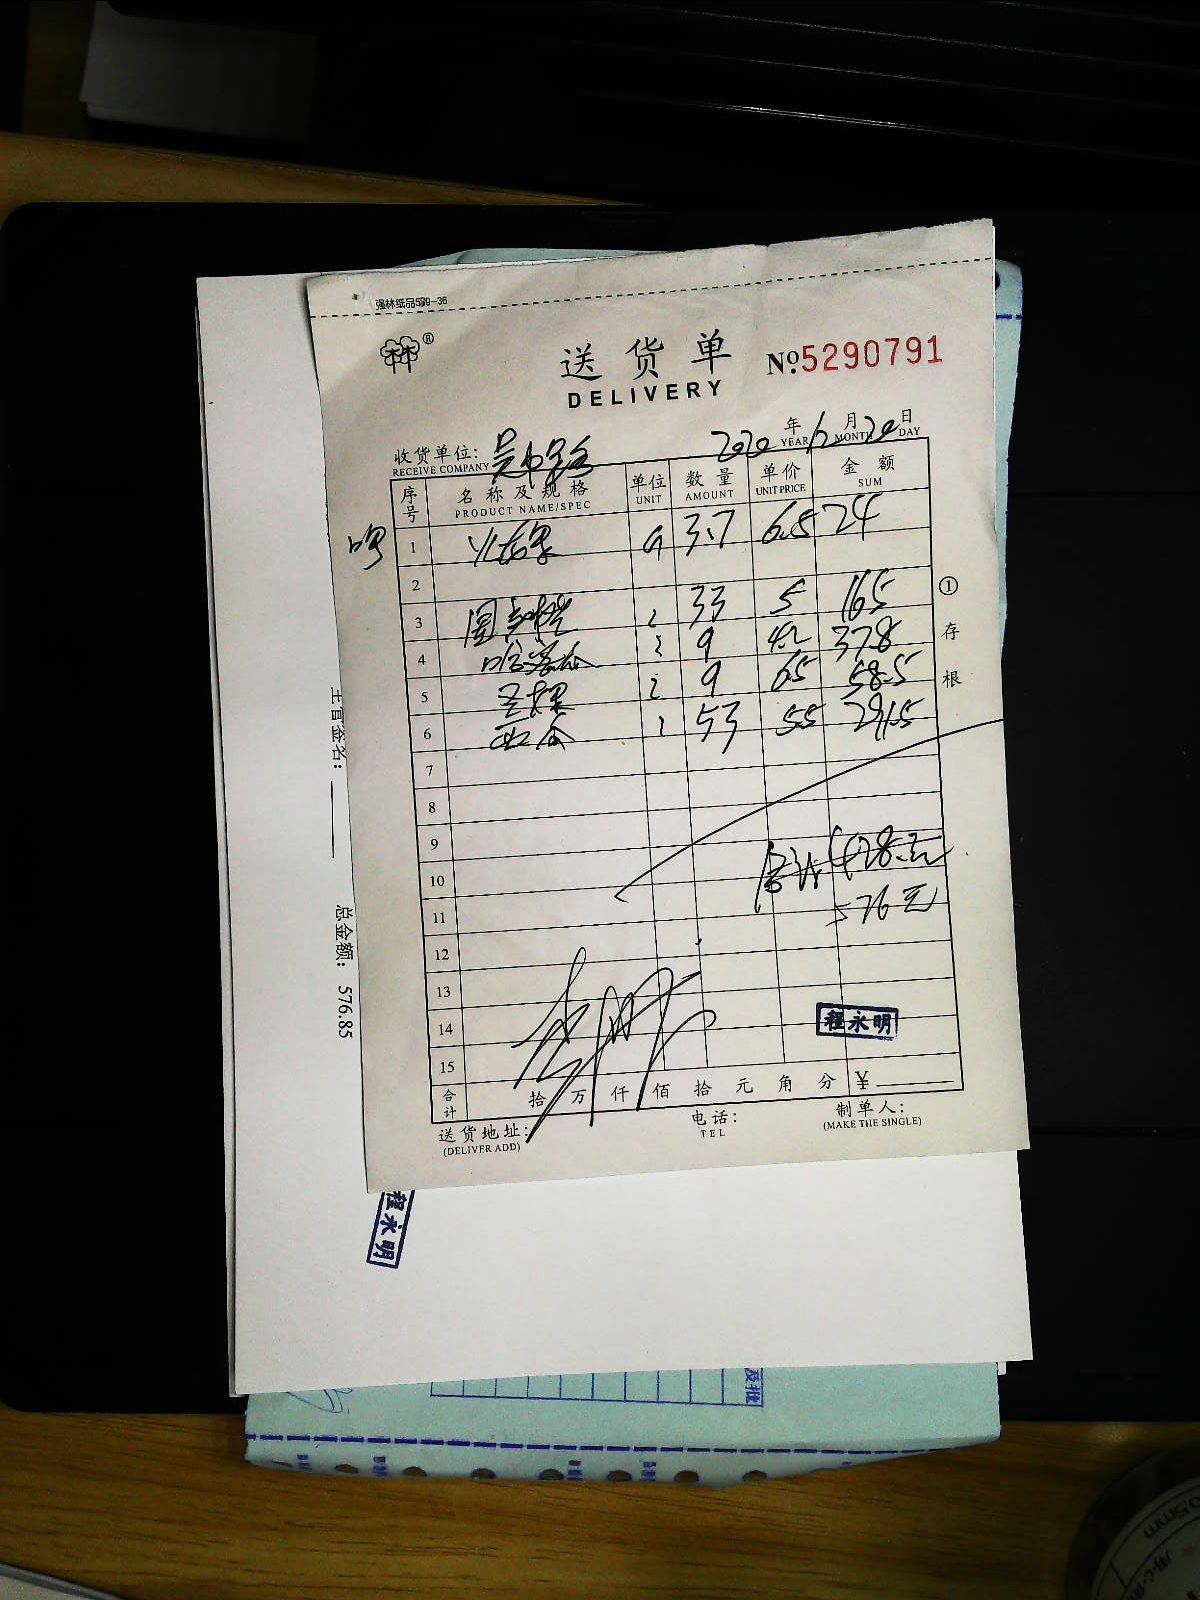 强林纸品599-36
林®
送货单 №5290791
DELIVERY
收货单位: 2020 年 月 20 日
RECEIVE COMPANY YEAR MONTH DAY
序号 名称及规格 单位 数量 单价 金额
PRODUCT NAME/SPEC UNIT AMOUNT UNIT PRICE SUM
1 火龙果 3.7 6.5 24
2
3 33 5 165
4 哈密瓜 9 4.2 37.8
5 9 6.5 58.5
6 西瓜 53 5.5 291.5
7
8
9
10 合计: 428元
11 576元
12
13
14 程永明
15
合计 拾 万 仟 佰 拾 元 角 分 ¥
送货地址: 电话: 制单人:
(DELIVER ADD) TEL (MAKE THE SINGLE)
① 存根
主管签名:
总金额: 576.85
程永明
0.5mm